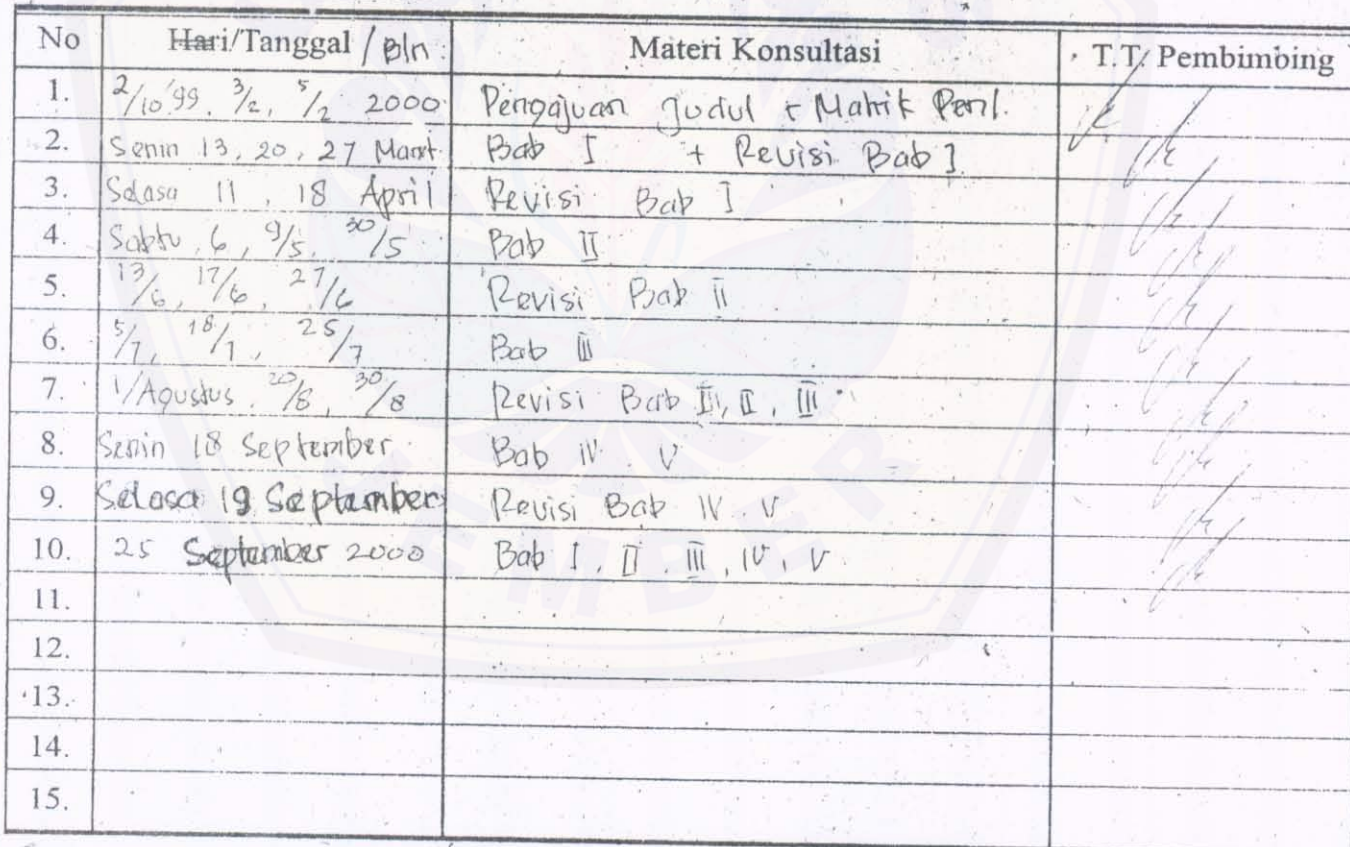 No Hari/Tanggal / Bln Materi Konsultasi T.T. Pembimbing
1. 2/10 '99, 3/2, 5/2 2000 Pengajuan Judul + Matrik Penl.
2. Senin 13, 20, 27 Maret Bab I + Revisi Bab I
3. Selasa 11, 18 April Revisi Bab I
4. Sabtu, 6, 9/5, 30/5 Bab II
5. 13/6, 17/6, 27/6 Revisi Bab II
6. 5/7, 18/7, 25/7 Bab III
7. 1/Agustus, 20/8, 30/8 Revisi Bab II, III
8. Senin 18 September Bab IV V
9. Selasa 19 September Revisi Bab IV V
10. 25 September 2000 Bab I, II, III, IV, V
11.
12.
13.
14.
15.
EMBER